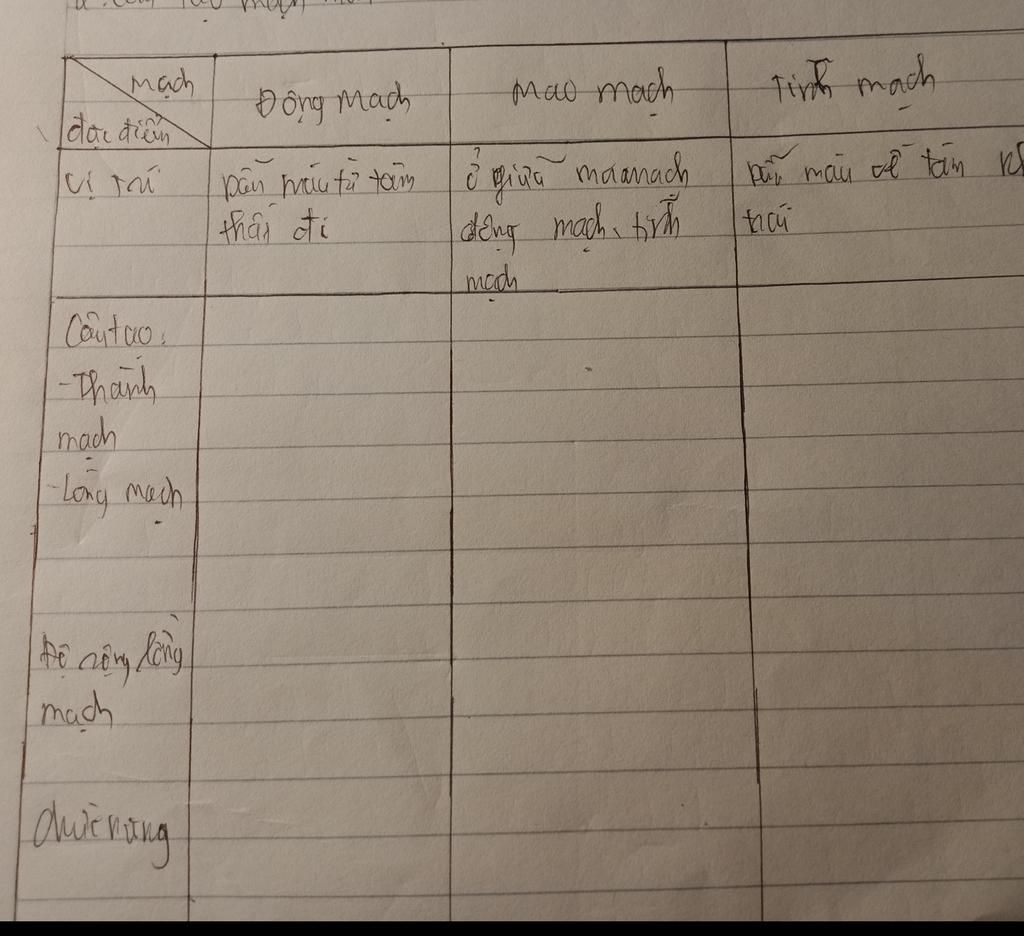 mạch
Động mạch
Mao mạch
Tĩnh mạch
đặc điểm
Vị trí
dẫn máu từ tâm
thất đi
ở giữa
động mạch, tĩnh
mạch
dẫn máu về tâm
Cấu tạo:
- Thành
mạch
- Lòng mạch
Độ rộng lòng
mạch
chức năng